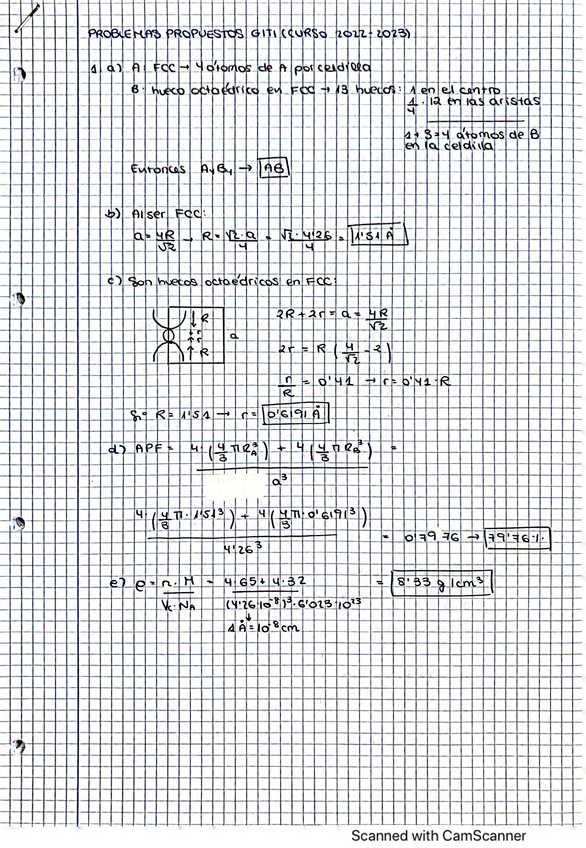 PROBLEMAS PROPUESTOS GITI (CURSO 2022-2023)
1. a) A: FCC → 4 átomos de A por celdilla
B: hueco octaédrico en FCC → 13 huecos: 1 en el centro
1/4 · 12 en las aristas
1 + 3 = 4 átomos de B
en la celdilla
Entonces A₄B₄ → AB
b) Al ser FCC:
a = 4R/√2 → R = √2·a/4 = √2·4'26/4 = 1'51 Å
c) Son huecos octaédricos en FCC:
R
r
r
R
a
2R + 2r = a = 4R/√2
2r = R (4/√2 - 2)
r/R = 0'41 → r = 0'41·R
Si R = 1'51 → r = 0'6191 Å
d) APF = (4·(4/3 π R_A³) + 4(4/3 π R_B³)) / a³ =
(4·(4/3 π·1'51³) + 4(4/3 π·0'6191³)) / 4'26³ = 0'7976 → 79'76%
e) ρ = n·M / V_c·N_A = (4·65 + 4·32) / ((4'26·10⁻⁸)³·6'023·10²³) = 8'33 g/cm³
↓
1 Å = 10⁻⁸ cm
Scanned with CamScanner